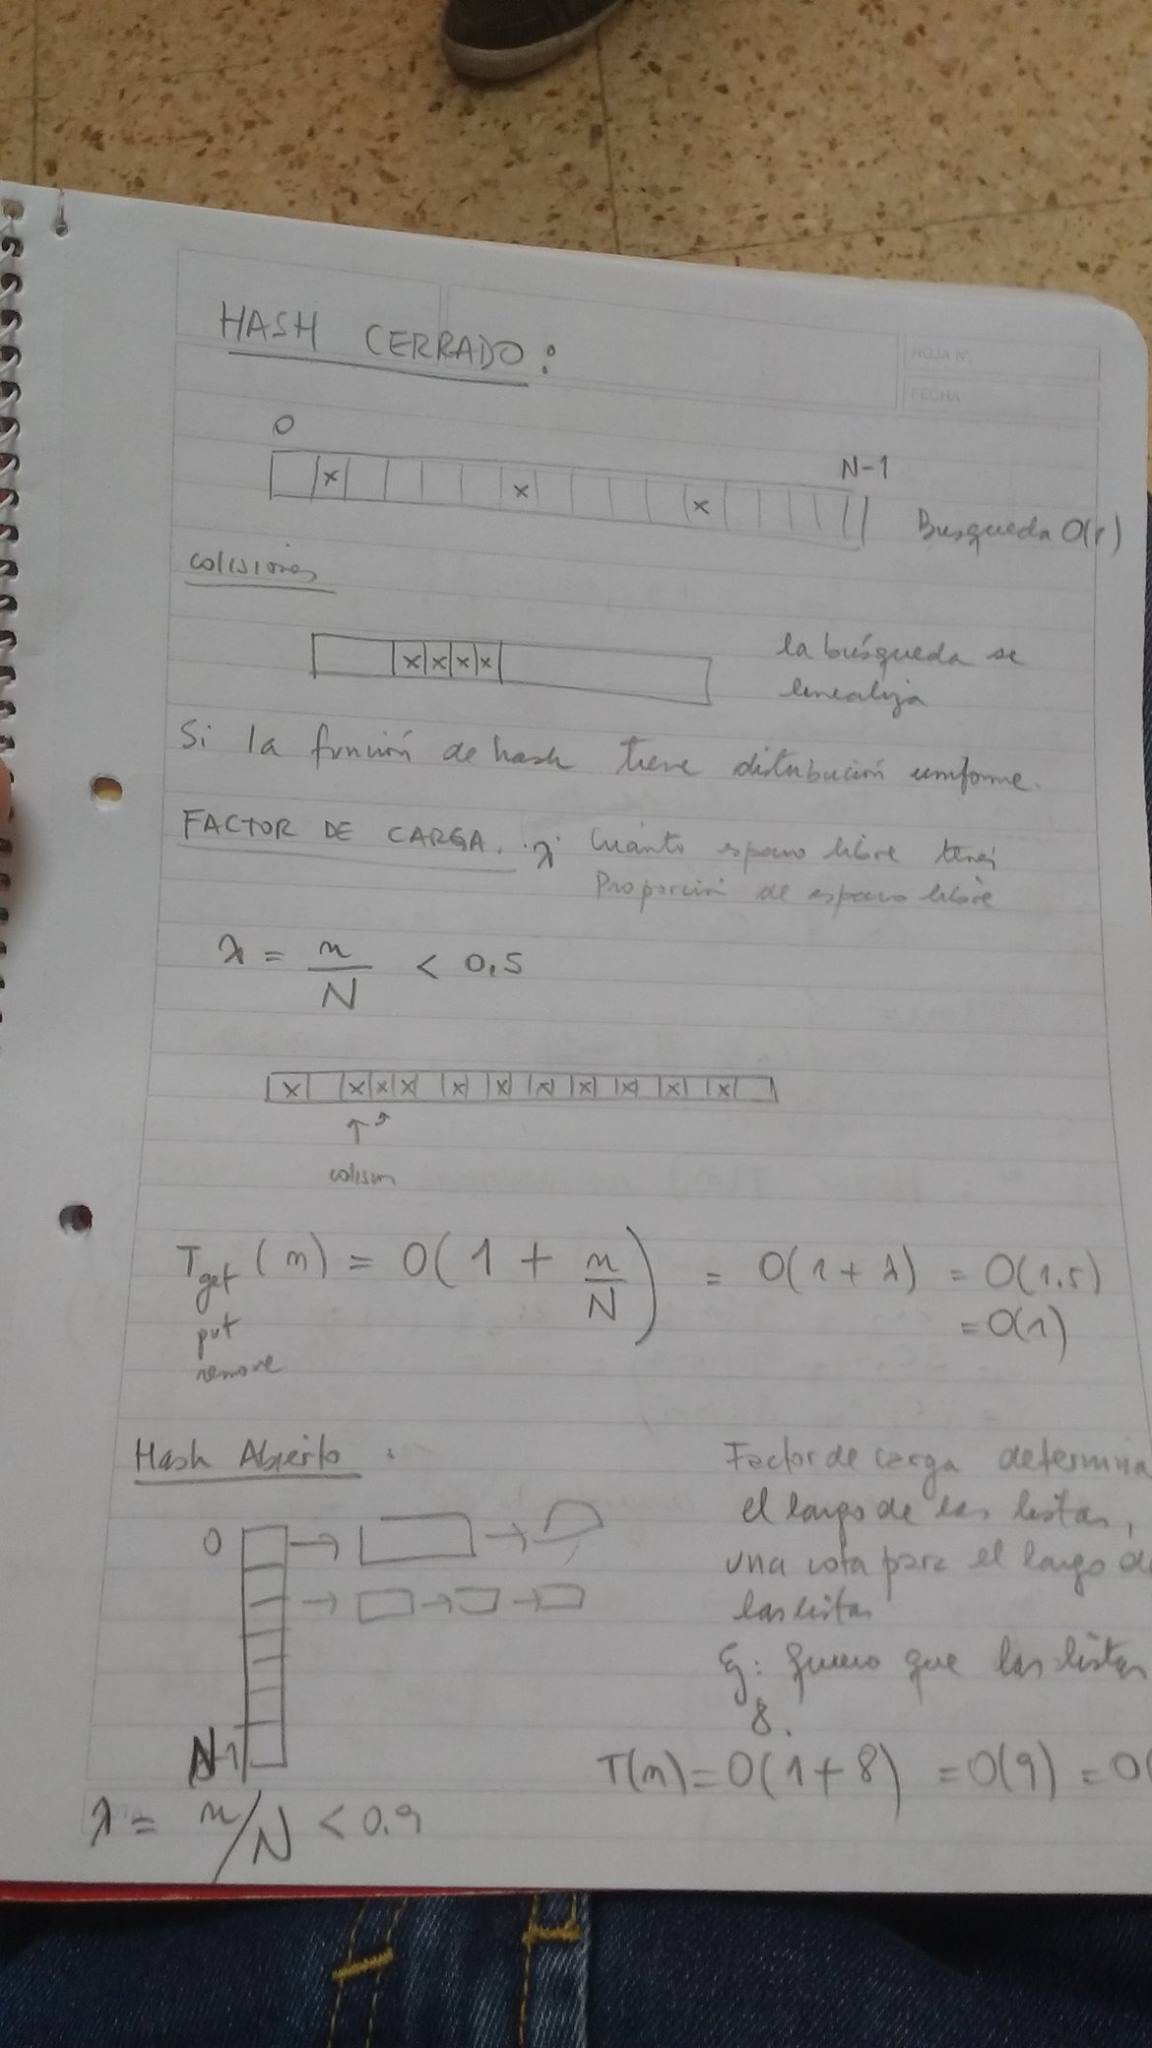 HOJA Nº
FECHA
HASH CERRADO:
0
N-1
x x x
Busqueda O(1)
colisiones
x x x x
la búsqueda se
linealiza
Si la función de hash tiene distribución uniforme.
FACTOR DE CARGA. λ: Cuánto espacio libre tenés
Proporción de espacio libre
λ = n/N < 0,5
x x x x x x x x x x x
colision
T get (n) = O(1 + n/N) = O(1+λ) = O(1.5)
put = O(1)
remove
Hash Abierto:
Factor de carga determina
el largo de las listas,
una cota para el largo de
las listas
Ej: quiero que las listas
8.
0
N-1
T(n) = O(1+8) = O(9) = O(
λ = n/N < 0.9